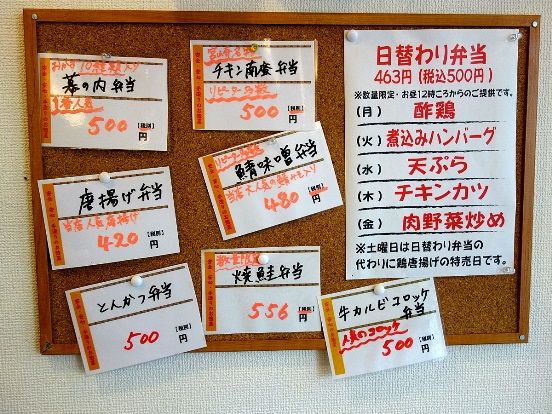 おかず10種類入り
幕の内弁当
1番人気
500
【税別】
円
宮崎名物
チキン南蛮弁当
リピーター多数
500
【税別】
円
唐揚げ弁当
当店人気唐揚げ
420
【税別】
円
リピーター多数
鯖味噌弁当
当店大人気の鯖みそ入り
480
【税別】
円
とんかつ弁当
500
【税別】
円
数量限定
焼鮭弁当
556
【税別】
円
牛カルビコロッケ
弁当
人気のコロッケ
500
【税別】
円
日替わり弁当
463円(税込500円)
※数量限定・お昼12時ころからのご提供です。
(月) 酢鶏
(火) 煮込みハンバーグ
(水) 天ぷら
(木) チキンカツ
(金) 肉野菜炒め
※土曜日は日替わり弁当の
代わりに鶏唐揚げの特売日です。